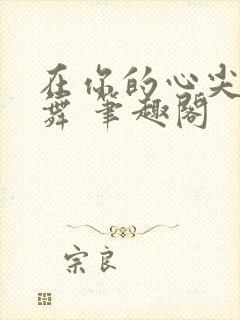 在你的心尖
舞 笔趣阁
宗良